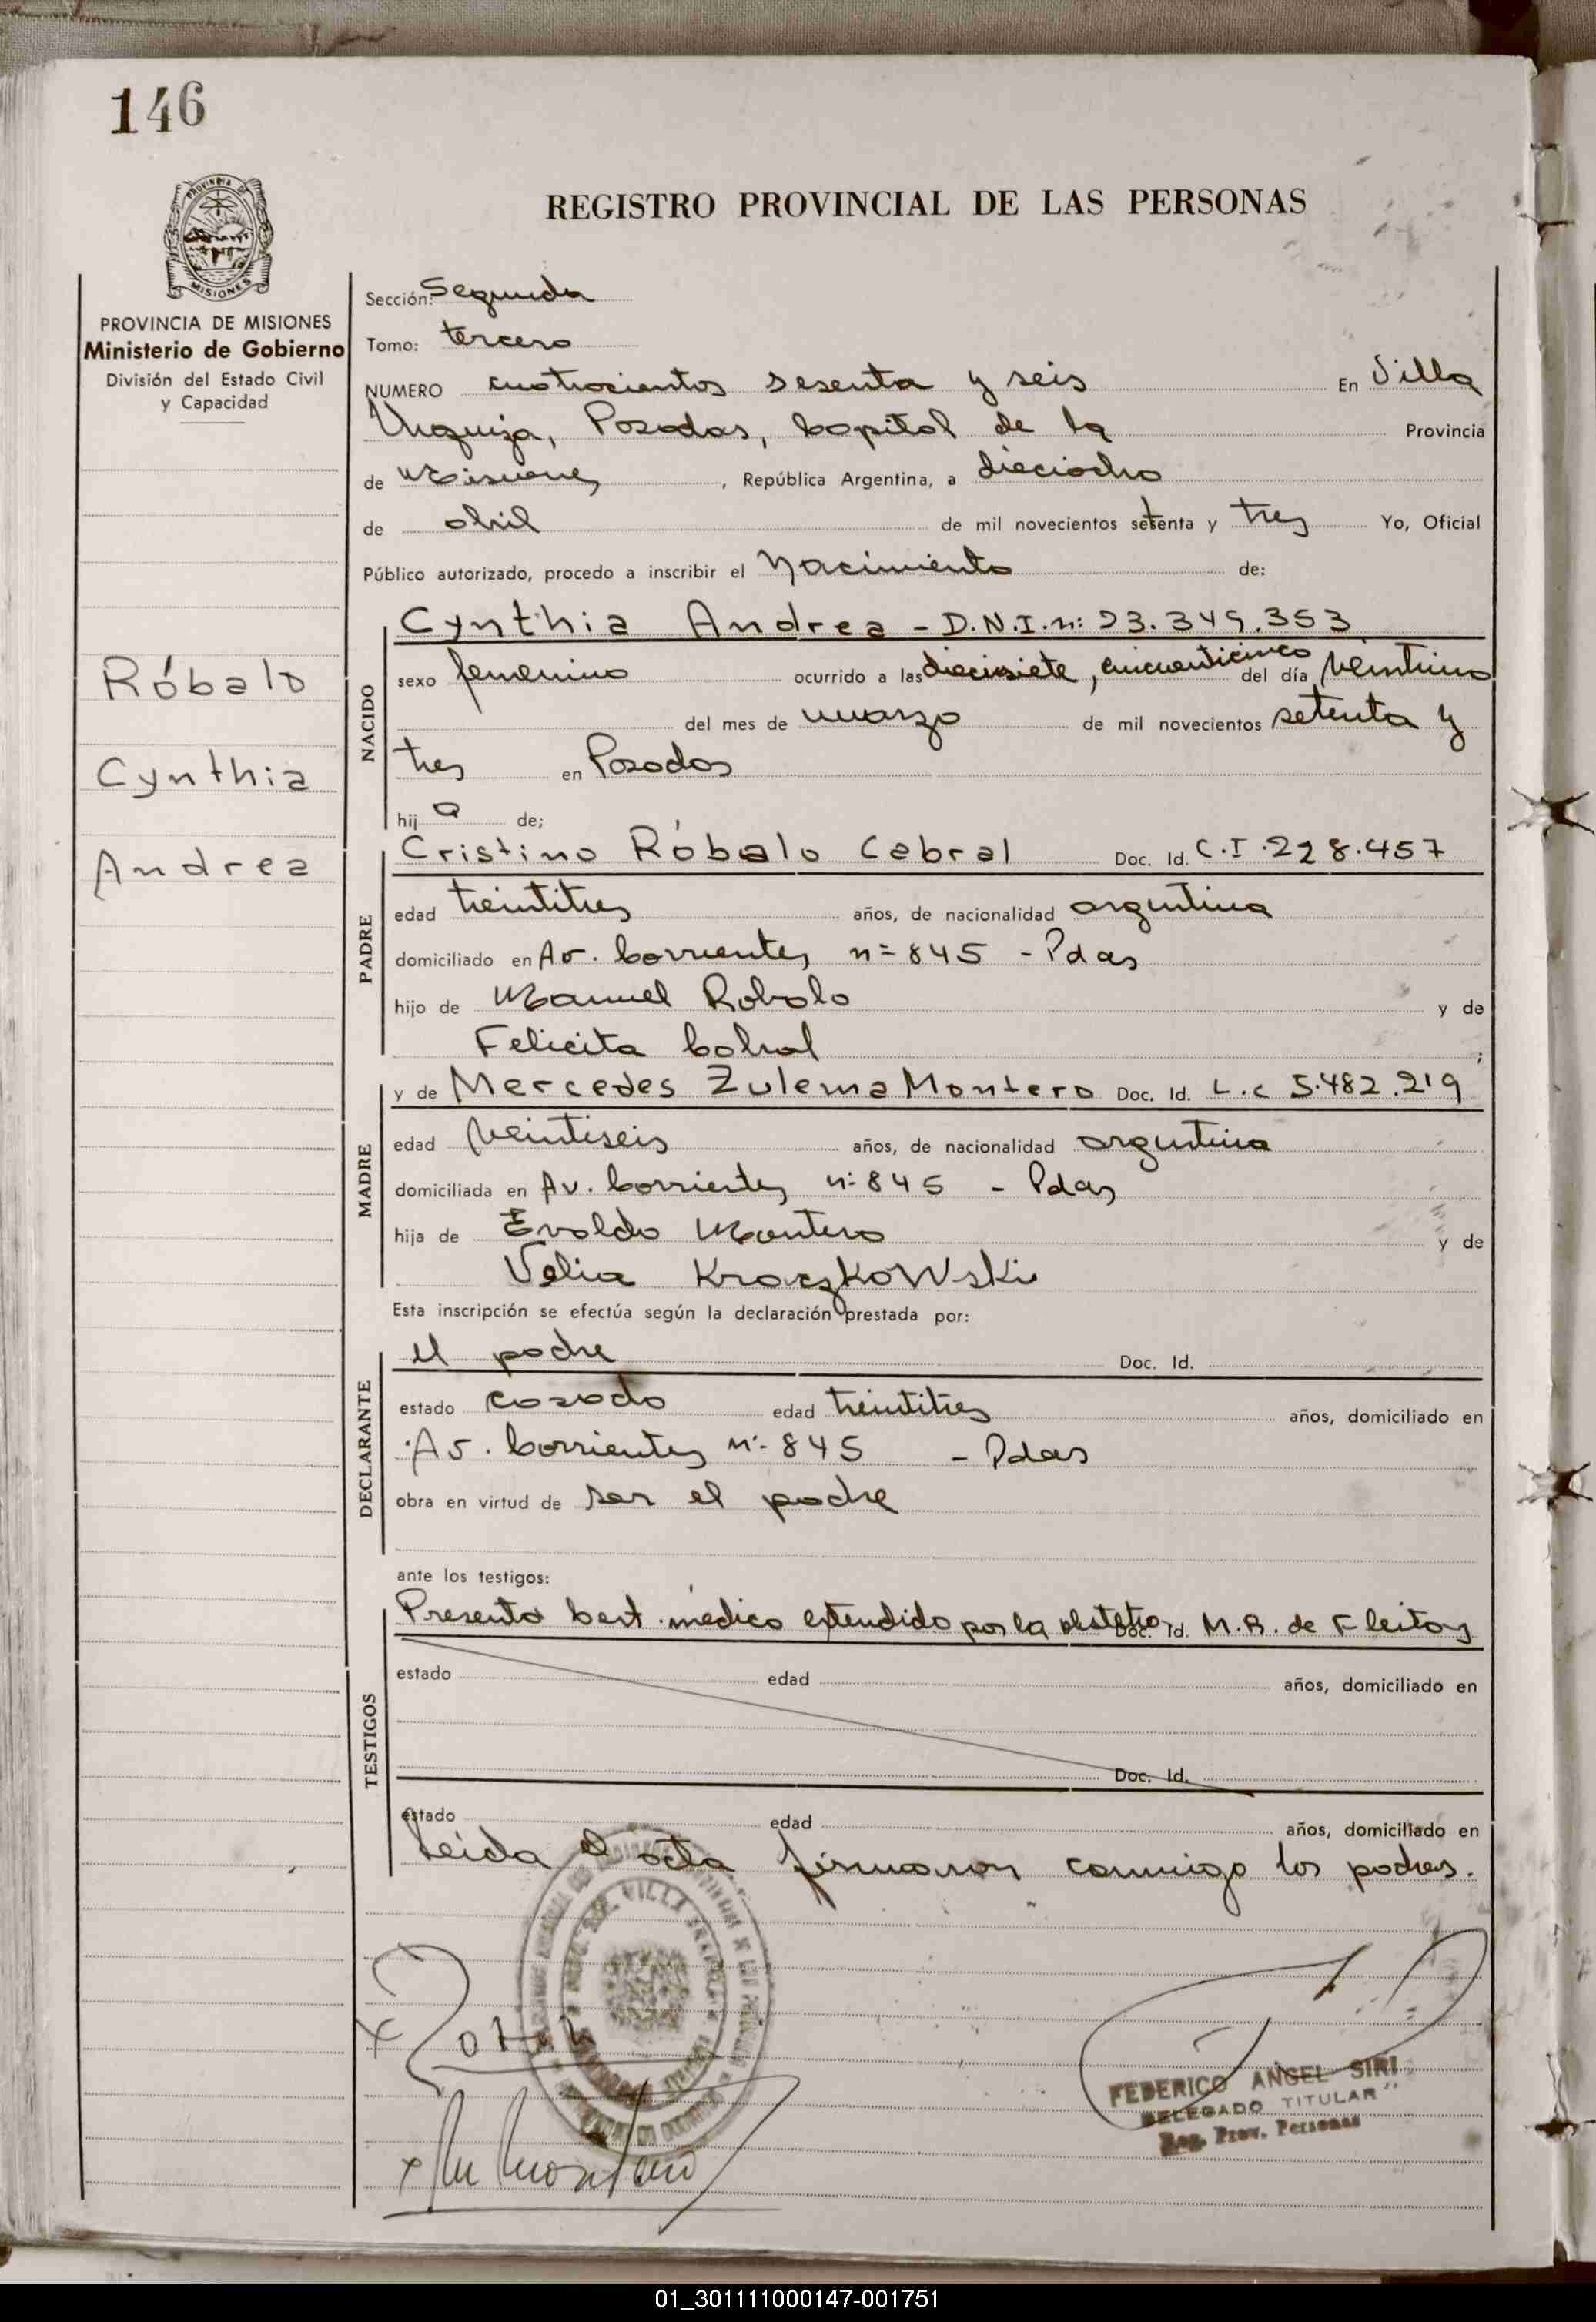 146
PROVINCIA DE
MISIONES
REGISTRO PROVINCIAL DE LAS PERSONAS
PROVINCIA DE MISIONES
Ministerio de Gobierno
División del Estado Civil
y Capacidad
Róbalo
Cynthia
Andrea
Sección: Segunda
Tomo: tercero
NUMERO cuatrocientos sesenta y seis En Villa
Urquiza, Posadas, Capital de la Provincia
de Misiones, República Argentina, a dieciocho
de abril de mil novecientos setenta y tres Yo, Oficial
Público autorizado, procedo a inscribir el Nacimiento de:
NACIDO
Cynthia Andrea - D.N.I. n: 23.349.353
sexo femenino ocurrido a las diecisiete, cincuenticinco del día veintiuno
del mes de marzo de mil novecientos setenta y
tres en Posadas
hija de;
PADRE
Cristino Róbalo Cabral Doc. Id. C.I. 228.457
edad treintitres años, de nacionalidad argentina
domiciliado en Av. Corrientes n= 845 - Pdas
hijo de Manuel Robalo y de
Felicita Cabral ;
MADRE
y de Mercedes Zulema Montero Doc. Id. L.C 5.482.219
edad veintiseis años, de nacionalidad argentina
domiciliada en Av. Corrientes n: 845 - Pdas
hija de Evaldo Montero y de
Velia Kraczkowski
Esta inscripción se efectúa según la declaración prestada por:
DECLARANTE
el padre Doc. Id.
estado casado edad treintitres años, domiciliado en
Av. Corrientes n: 845 - Pdas
obra en virtud de ser el padre
ante los testigos:
TESTIGOS
Presento Cert. médico extendido por la obstetra Doc. Id. M.R. de Fleitas
estado edad años, domiciliado en
Doc. Id.
estado edad años, domiciliado en
Leida el acta firmaron conmigo los padres.
VILLA
FEDERICO ANGEL SIRI
DELEGADO TITULAR
Reg. Prov. Personas
01_301111000147-001751